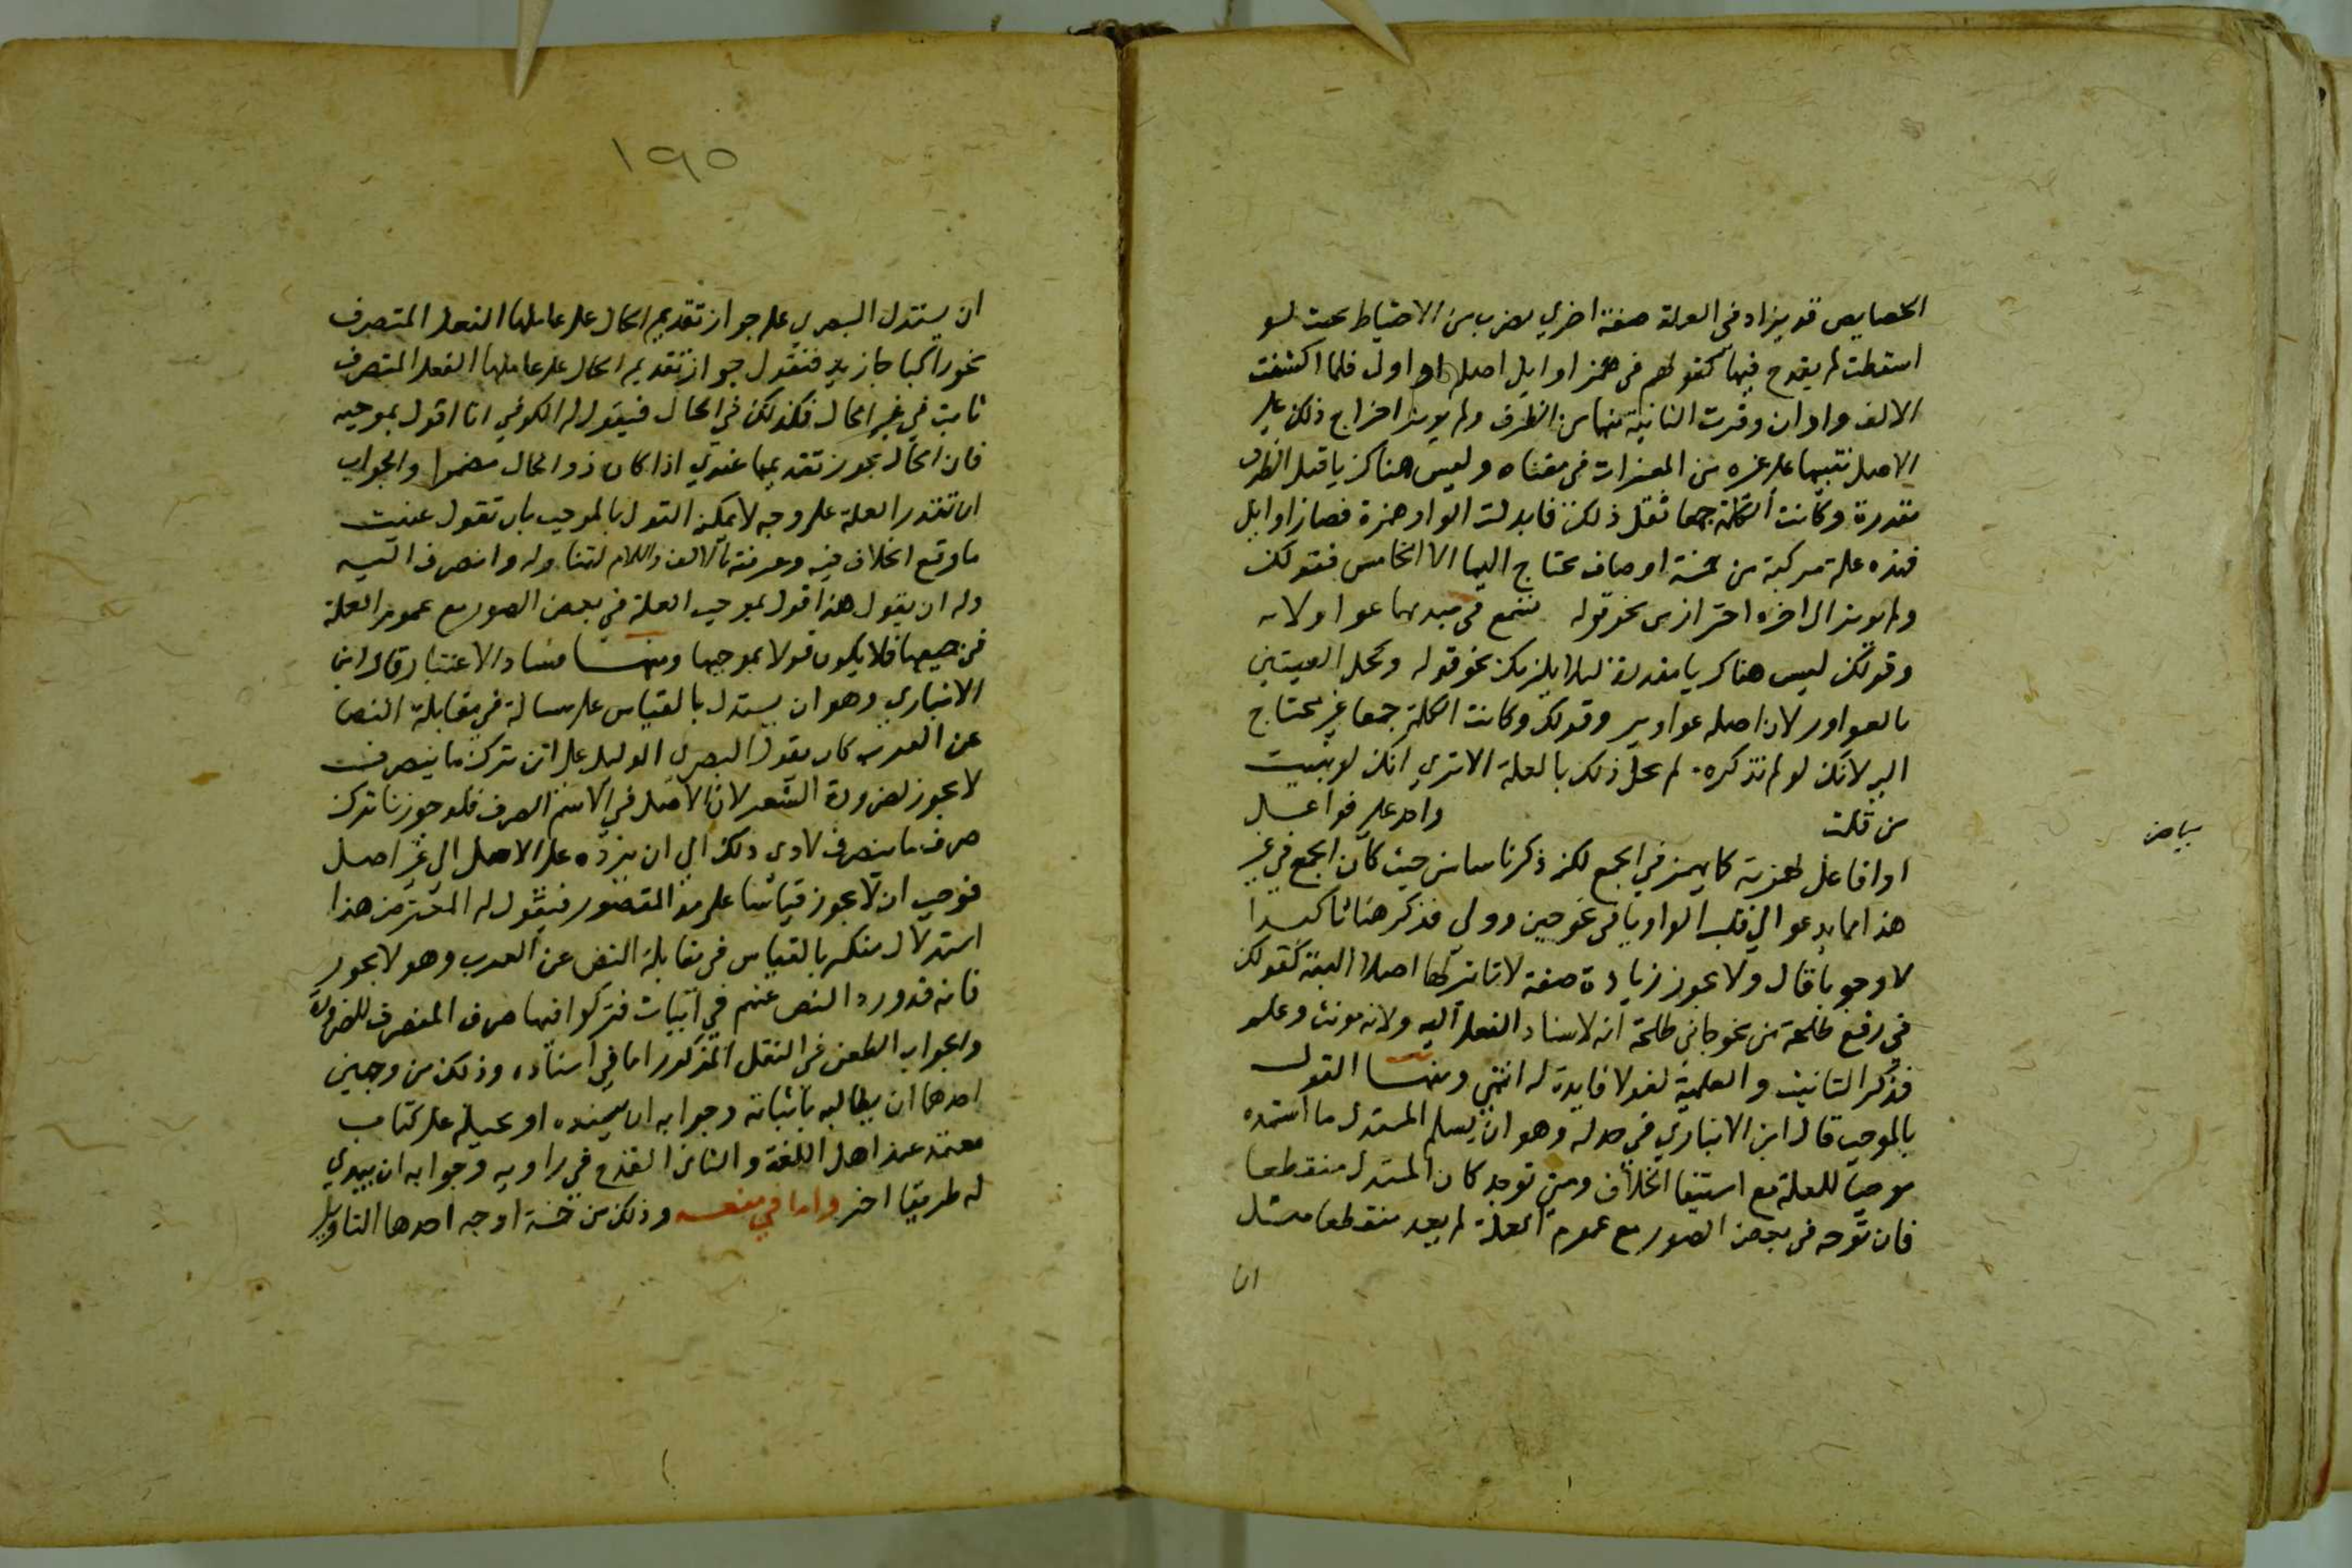 الخصايص قد يزاد في العلة صفة اخري لضرب من الاحتياط بحيث لو
اسقطت لم يقدح فيها كقولهم في همز اوايل اصله اواول فلما اكتنفت
الالف واوان وقربت الثانية منهما من الطرف ولم يوثر اخراج ذلك علي
الاصل تنبيها علي غيره من المغيرات في معناه وليس هناك ياقبل الطرف
مقدرة وكانت الكلمة جمعا ثقل ذلك فابدلت الواو همزة فصار اوايل
فهذه علة مركبة من خمسة اوصاف يحتاج اليها الا الخامس فقولك
ولم يوثر الي اخره احتراز من نحو قوله تسمع في
وقولك ليس هناك يا مقدرة ليلا يلزمك نحو قوله وكحل العينين
بالعواور لان اصله عواوير وقولك وكانت الكلمة جمعا غير محتاج
اليه لانك لو لم تذكره لم يخل ذلك بالعلة الاتري انك لو بنيت
من قلت واحد علي فواعل
بياض
او افاعل لهمزته كما يهمز في الجمع لكنه ذكر تاسا من حيث كان الجمع في غير
هذا مما يدعو الي قلب الواو يا في نحو ودلي فذكر هنا تاكيدا
لا وجوبا قال ولا يجوز زيادة صفة لا تاثير لها اصلا البتة كقولك
في رفع طلحة من نحو جاني طلحة انه لاسناد الفعل اليه ولانه مونث وعلم
فذكر التانيث والعلمية لغو لا فايدة له انتهي ومنها القول
بالموجب قال ابن الانباري في جدله وهو ان يسلم المستدل ما اتخذه
موجبا للعلة مع استبقا الخلاف ومتي توجه كان المستدل منقطعا
فان توجه في بعض الصور مع عموم العلة لم يعد منقطعا مثل
ان
١٩٥
ان يستدل البصري علي جواز تقديم الحال علي عاملها الفعل المتصرف
نحو راكبا جا زيد فنقول جواز تقديم الحال علي عاملها الفعل المتصرف
ثابت في غير الحال فكذلك في الحال فيقول له الكوفي انا اقول بموجبه
فان الحال يجوز تقديمها عندي اذا كان ذو الحال مضمرا والجواب
ان تقدر العلة علي وجه لا يمكنه القول بالموجب بان تقول عنيت
ما وقع الخلاف فيه وعرفته بالالف واللام لتناوله وانصرف اليه
وله ان يقول هذا قول بموجب العلة في بعض الصور مع عموم العلة
في جميعها فلا يكون قولا بموجبها ومنها فساد الاعتبار قال ابن
الانباري وهو ان يستدل بالقياس علي مسالة في مقابلة النص
عن العرب كان يقول البصري الدليل علي ان ترك ما ينصرف
لا يجوز لضرورة الشعر لان الاصل في الاسم الصرف فلو جوزنا ترك
صرف ما ينصرف لادي ذلك الي ان نرده عن الاصل الي غير اصل
فوجب ان لا يجوز قياسا علي مد المقصور فيقول له المعترض هذا
استدلال منك بالقياس في مقابلة النص عن العرب وهو لا يجوز
فانه قد ورد النص عنهم في ابيات فتركوا فيها صرف المنصرف للضرورة
والجواب الطعن في النقل المذكور اما في اسناده وذلك من وجهين
احدهما ان يطالبه باثباته وجوابه ان يسنده او يحيله علي كتاب
معتمد عند اهل اللغة والثاني القدح في راويه وجوابه ان يبدي
له طريقا اخر واما في متنه وذلك من خمسة اوجه احدها التاويل